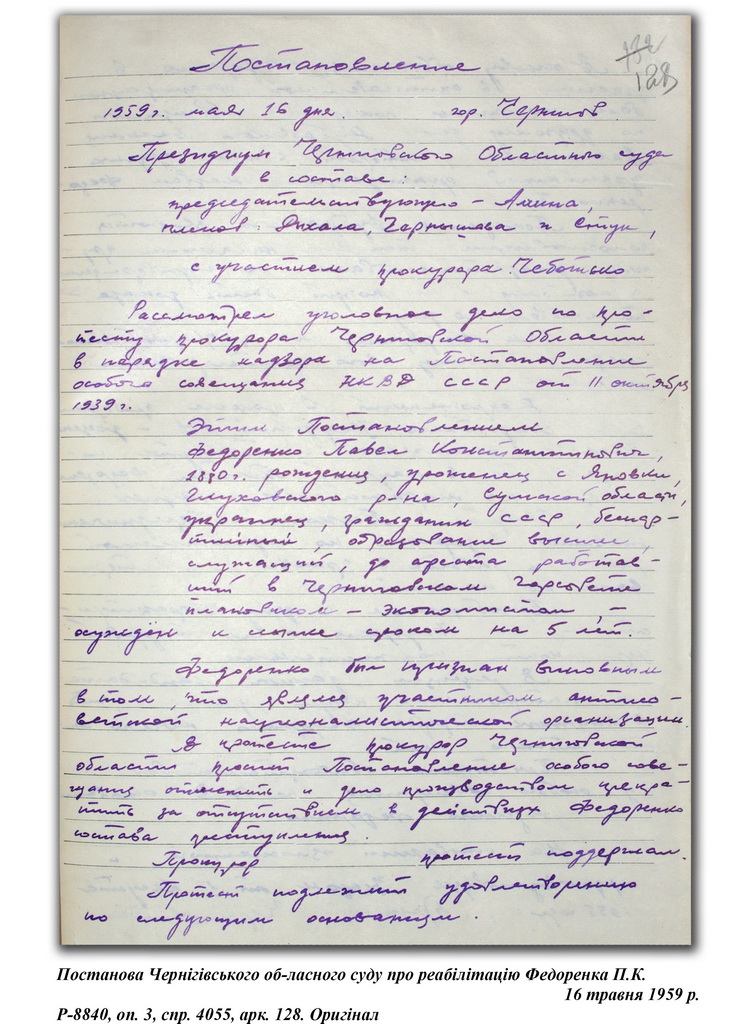 132
128
Постановление
1959 г. мая 16 дня. гор. Чернигов
Президиум Черниговского Областного суда
в составе:
председательствующего – Ляшна,
членов: Дыхала, Чернышова и Стук,
с участием прокурора Чеботько
Рассмотрел уголовное дело по про-
тесту прокурора Черниговской Области
в порядке надзора на Постановление
особого совещания НКВД СССР от 11 октября
1939 г.
Этим Постановлением
Федоренко Павел Константинович,
1880 г. рождения, уроженец с Яновки,
Глуховского р-на, Сумской области,
украинец, гражданин СССР, беспар-
тийный, образование высшее,
служащий, до ареста работав-
ший в Черниговском Горсовете
плановиком – экономистом, –
осужден к ссылке сроком на 5 лет.
Федоренко был признан виновным
в том, что являлся участником антисо-
ветской националистической организации.
В протесте прокурор Черниговской
области просит Постановление особого сове-
щания отменить и дело производством прекра-
тить за отсутствием в действиях Федоренко
состава преступления.
Прокурор протест поддержал.
Протест подлежит удовлетворению
по следующим основаниям.
Постанова Чернігівського об-ласного суду про реабілітацію Федоренка П.К.
16 травня 1959 р.
Р-8840, оп. 3, спр. 4055, арк. 128. Оригінал